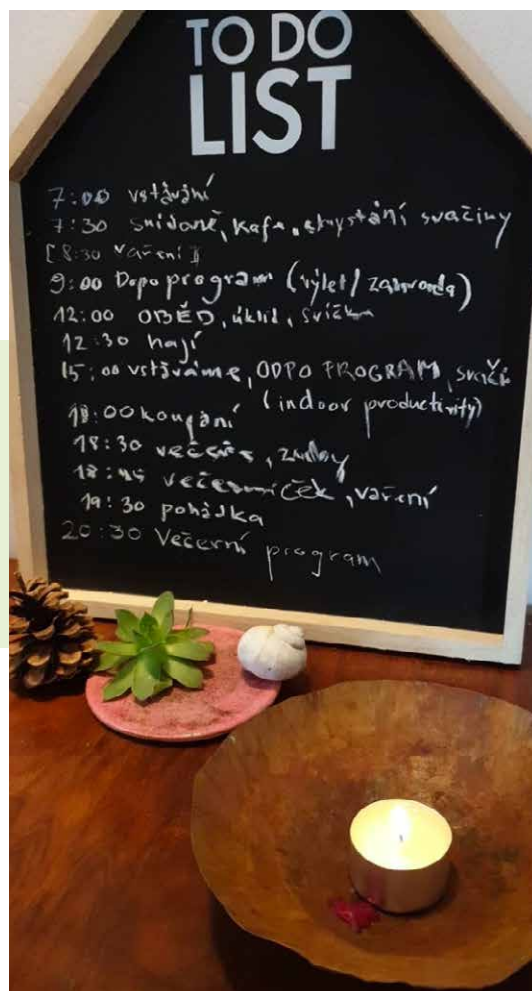 TO DO
LIST
7:00 vstávání
7:30 snídaně, kafe, chystání svačiny
[8:30 Vaření]
9:00 Dopo program (výlet/zahrada)
12:00 OBĚD, úklid, svíčka
12:30 hají
15:00 vstáváme, ODPO PROGRAM, svač
(indoor productivity)
18:00 koupání
18:30 večeře, zuby
18:45 večerníček, vaření
19:30 pohádka
20:30 Večerní program